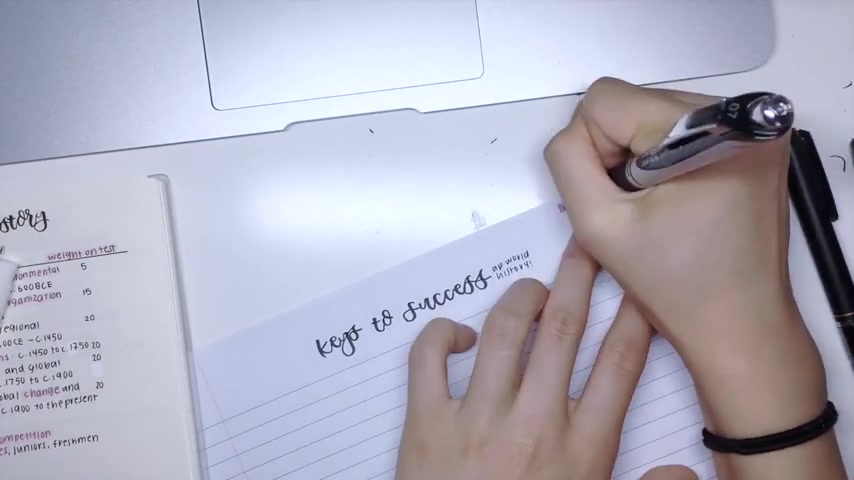 story
weight on test
onmental 5
600BCE
ganization 15
regional 20
00CE - c.1450
ns: c.1450 to c.1750 20
and global 20
.1750 to c.1900
obal change and 20
c.1900 to the present
ompetition
es, juniors, freshmen
keys to success
ap world
history!
07